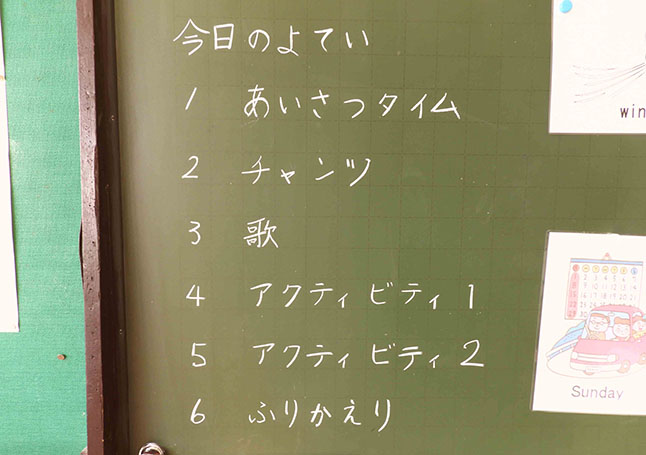 今日のよてい
1 あいさつタイム
2 チャンツ
3 歌
4 アクティビティ1
5 アクティビティ2
6 ふりかえり
win
Sunday